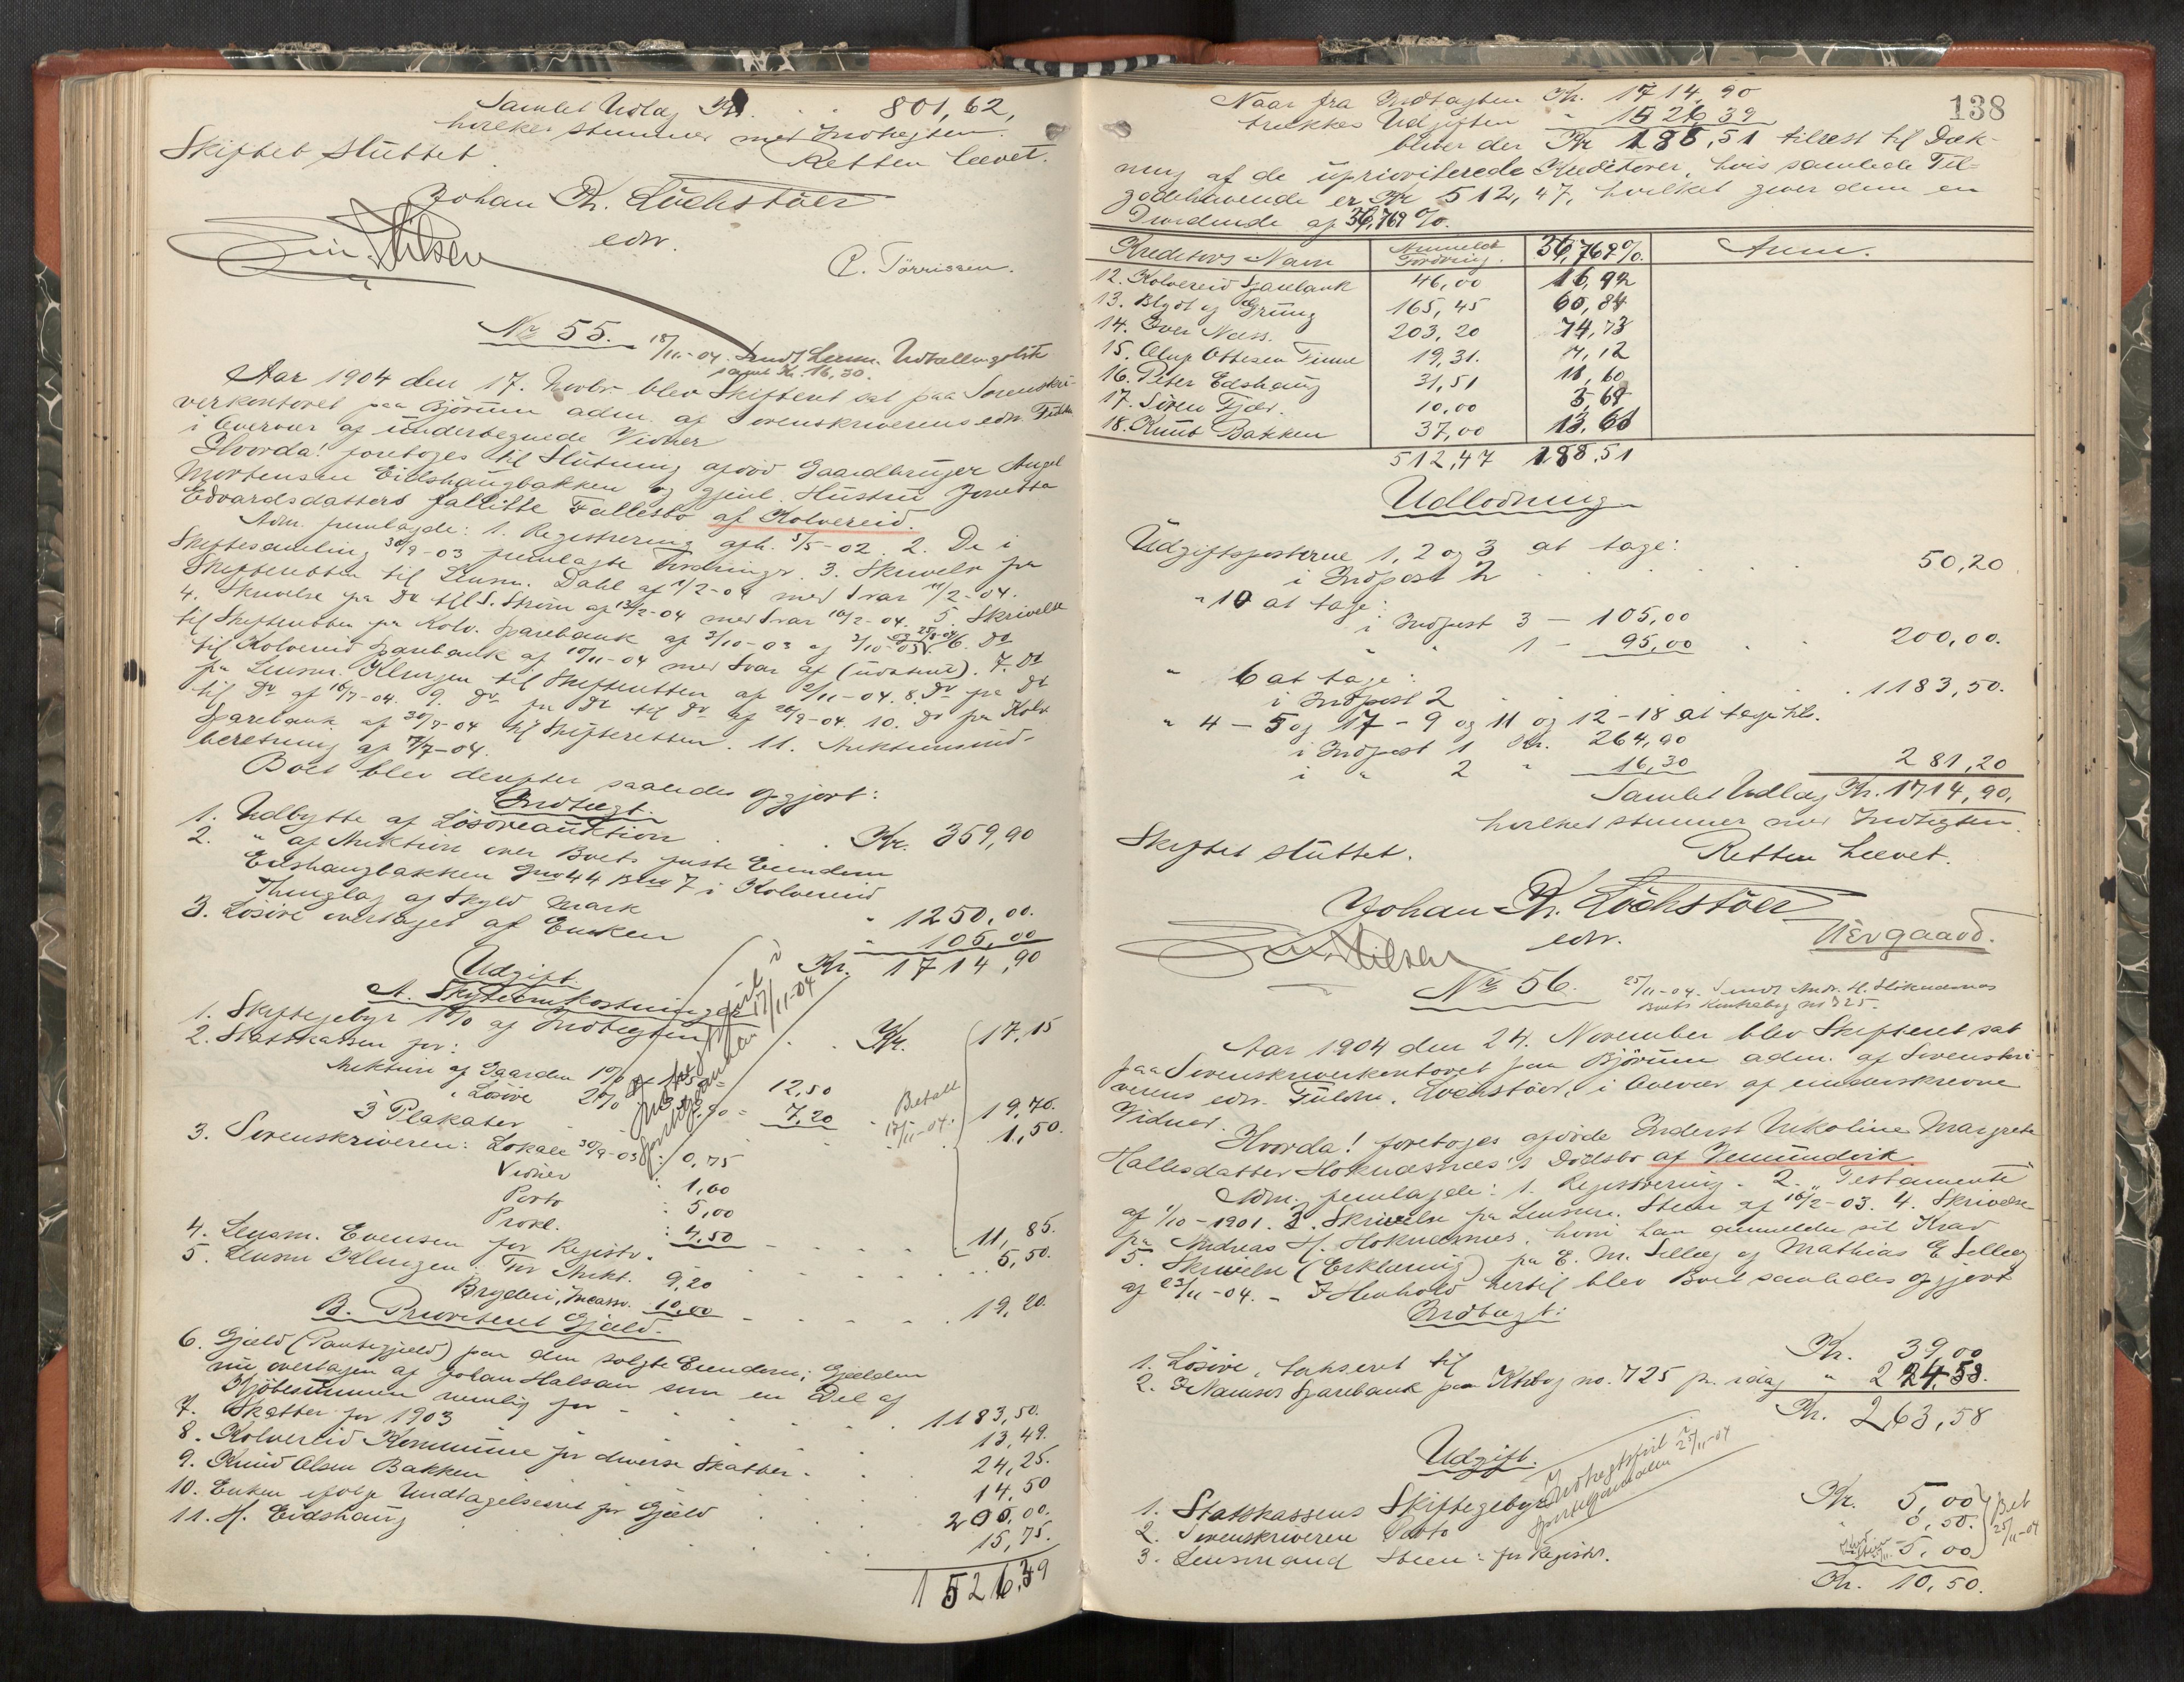 Samlet Udlæg Kr. . . 801,62,
hvilket stemmer med Indtægten.
Skiftet sluttet. Retten hævet.
Johan Th. Lochstöer
edsv.
P. Törrissen.
No 55. 18/11-04. Sendt Lensm. Udbetalingsliste
samt Kr. 16,30.
Aar 1904 den 17. Novbr. blev Skifteret sat paa Sorenskri-
verkontoret paa Björum adm. af Sorenskriverens edsv. Fuldm.
i Overvær af underbegnede Vidner
Hvorda! foretoges til Slutning afdöd Gaardbruger Angel
Mortensen Eidshaugbakken og gjenl. Hustru Jonetta
Edvardsdatters fallitte Fællesbo af Kolvereid.
Adm. fremlagde: 1. Registrering afh. 5/5-02. 2. De i
Skiftesamling 30/9-03 fremlagte Fordringer. 3. Skrivelse fra
Skifteretten til Lensm. Dahl af 1/2-04 med Svar 11/2-04.
4. Skrivelse fra Do til S. Ström af 13/2-04 med Svar 16/2-04. 5. Skrivelse
til Skifteretten fra Kolv. Sparebank af 3/10-03 og 3/10-03 6. Do
til Kolvereid Sparebank af 10/11-04 med Svar af (udateret). 7. Do
fra Lensm. Klungen til Skifteretten af 2/11-04. 8. Do fra Do
til Do af 16/7-04. 9. Do fra Do til Do af 26/9-04. 10. Do fra Kolv.
Sparebank af 30/9-04 til Skifteretten. 11. Auktionsind-
beretning af 7/7-04.
Boet blev derefter saaledes opgjort:
Indtægt.
1. Udbytte af Lösöreauktion . . Kr. 359,90
2. " af Auktion over Boets faste Eiendom
Eidshaugbakken Gno 44 Bno 7 i Kolvereid
Thinglag af Skyld Mark " 1250,00.
3. Lösöre overtaget af Enken " 105,00
Kr. 1714,90
Udgift.
A. Skifteomkostninger
1. Skiftegebyr 1% af Indtægten . . Kr. 17,15
2. Statskassen for:
Auktion af Gaarden 1% 12,50
" Lösöre 2% = 7,20 19,70.
3 Plakater 1,50.
Betalt
17/11-04.
Indtægtsført i
Sporteljournalen 17/11-04
3. Sorenskriveren: Lokale 30/9-03: 0,75
Vidner : 1,60
Porto : 5,00
Prokl. : 4,50 11,85.
4. Lensm. Evensen for Registr. 5,50.
5. Lensm Klungen: For Aukt. 9,20
Bryderi, Incasso. 10,00 19,20.
B. Prioriteret Gjæld.
6. Gjæld (Pantegjæld) paa den solgte Eiendom; Gjælden
nu overtagen af Johan Halsan som en Del af
Kjöbesummen nemlig for 1183,50.
7. Skatter for 1903 13,49.
8. Kolvereid Kommune for diverse Skatter. 24,25.
9. Knud Olsen Bakken 14,50
10. Enken ifölge Undtagelsesret for Gjæld 200,00.
11. H. Eidshaug 15,75.
1526,39
138
Naar fra Indtægten Kr. 1714,90
trækkes Udgiften " 1526,39
bliver der Kr 188,51 tilrest til Dæk-
ning af de uprioriterede Kreditorer, hvis samlede Til-
godehavende er Kr 512,47, hvilket giver dem en
Dividende af 36,769%.
Kreditors Navn Anmeldt Fordring. 36,769%. Anm.
12. Kolvereid Sparebank 46,00 16,92
13. Blydt og Grung 165,45 60,84
14. Iver Næss. 203,20 74,73
15. Oluf Ottesen Finne 19,31. 7,12
16. Peter Edshaug 31,51 11,60
17. Sören Fjær. 10,00 3,69
18. Knut Bakken 37,00 13,61
512,47 188,51
Udlodning
Udgiftsposterne 1, 2 og 3 at tage:
i Indpost 2 . . . . . 50,20
" 10 at tage:
i Indpost 3 — 105,00
" 1 - 95,00 . . 200,00.
" 6 at tage:
i Indpost 2 . . . . . 1183,50.
" 4 - 5 og 7 - 9 og 11 og 12-18 at tages til.
i Indpost 1 Kr. 264,90
i " 2 " 16,30 281,20
Samlet Udlæg Kr. 1714,90,
hvilket stemmer med Indtægten.
Skiftet sluttet. Retten hævet.
Johan Th. Lochstöer
edsv. Aergaard.
No 56. 25/11-04. Sendt Andr. H. Höknesnes
Boets Kontrabog no 725.
Aar 1904 den 24. November blev Skifteret sat
paa Sorenskriverkontoret paa Björum adm. af Sorenskri-
verens edsv. Fuldm. Lochstöer, i Overvær af underskrevne
Vidner.
Hvorda! foretoges afdöde Enderst Nikoline Margrete
Hallesdatter Höknesnes's Dödsbo af Vemundvik.
Adm. fremlagde: 1. Registrering. 2. "Testamente"
af 1/10-1901. 3. Skrivelse fra Lensm. Steen af 16/2-03. 4. Skrivelse
fra Andreas H. Höknesnes, hvori han anmelder sit Krav
5. Skrivelse (Erklæring) fra E. M. Selleg og Mathias E Selleg
af 23/11-04. - I Henhold hertil blev Boet saaledes opgjort
Indtægt:
1. Lösöre, takseret til Kr. 39,00
2. I Namsos Sparebank paa Kbog no. 725 pr. idag " 224,58.
Kr. 263,58
Udgift.
Indtægtsfört i
Sporteljournalen 25/11-04
1. Statskassens Skiftegebyr Kr. 5,00
2. Sorenskriveren Porto " 0,50.
3. Lensmand Steen: for Registr. 5,00
Bet
25/11-04
Kr. 10,50.